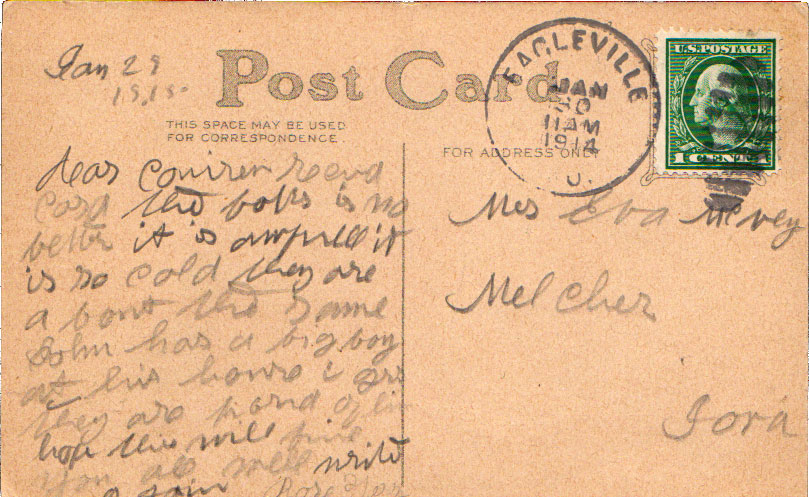 Jan 29
Post Card
THIS SPACE MAY BE USED
FOR CORRESPONDENCE.
FOR ADDRESS ONLY
EAGLEVILLE
JAN
30
11 AM
1914
O.
U.S. POSTAGE
1 CENT 1
dear
card the is no
better it is awfull it
is so cold they are
a bout the same
John has a big boy
at his house i
they are of
hope this will find
you all well
write
Mrs Eva
Melcher
Iora